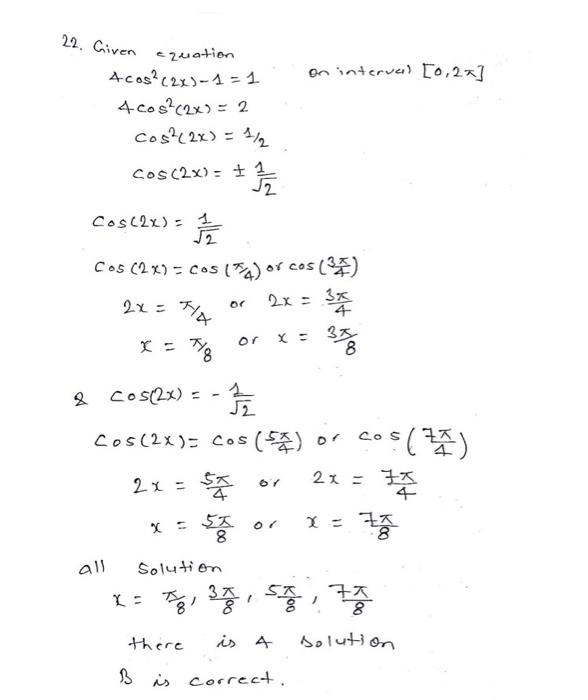 22. Given equation
4cos²(2x)-1 = 1 on interval [0,2π]
4cos²(2x) = 2
cos²(2x) = 1/2
cos(2x) = ± 1/√2
cos(2x) = 1/√2
cos(2x) = cos(π/4) or cos(3π/4)
2x = π/4 or 2x = 3π/4
x = π/8 or x = 3π/8
& cos(2x) = - 1/√2
cos(2x) = cos(5π/4) or cos(7π/4)
2x = 5π/4 or 2x = 7π/4
x = 5π/8 or x = 7π/8
all solution
x = π/8, 3π/8, 5π/8, 7π/8
there is 4 solution
B is correct.